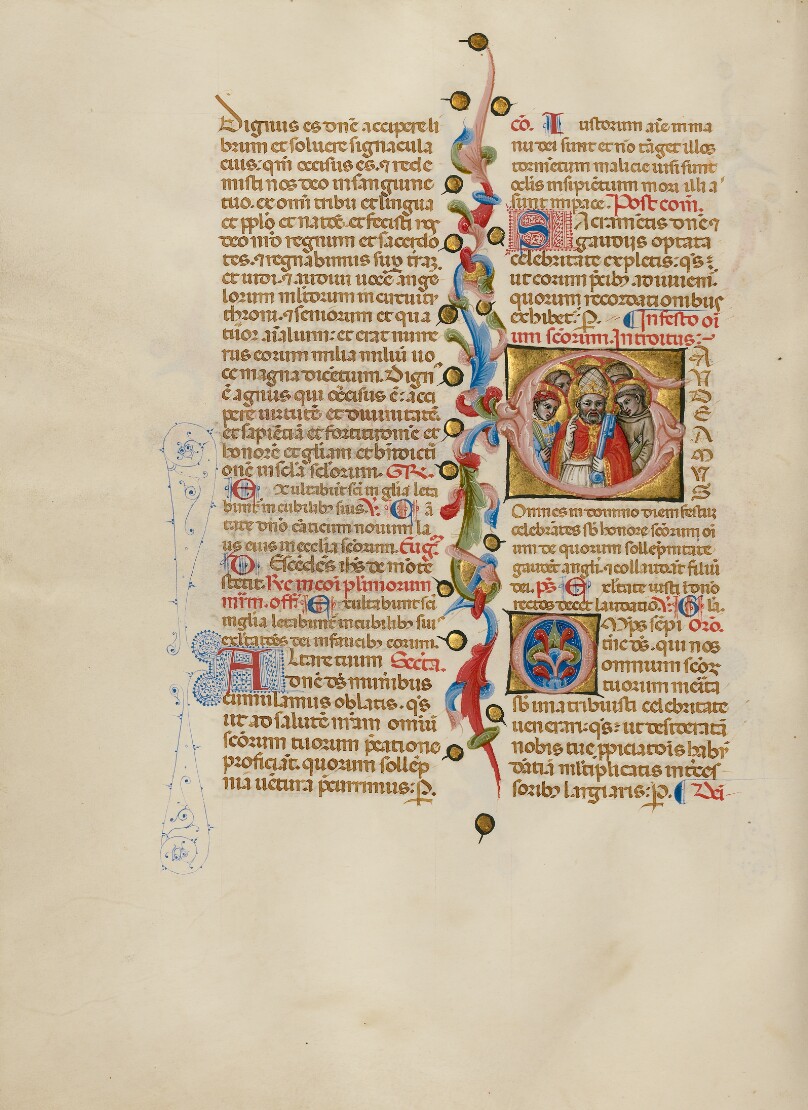 Dignus es dne accipere li
brum et soluere signacula
eius: qm occisus es. ⁊ rede
misti nos deo in sanguine
tuo. ex omi tribu et lingua
et pplo et natōe et fecisti nos
deo nro regnum et sacerdo
tes. ⁊ regnabimus sup trāz.
et uidi. ⁊ audiui uocē ange
lorum mltorum in circuitu
throni. ⁊ seniorum et qua
tuor aialium: et erat nume
rus eorum milia miliū uo
ce magna dicētium. Dign
ē agnus qui occisus ē: acci
pere uirtutē et diuinitatē
et sapiētiā et fortitudinē et
honorē et gliam et bndicti
onē in scla sclorum. GR.
Exultabūt sci in glia leta
būnt in cubilib suis. V. Cā
tate dno cāticum nouum la
us eius in ecclia scorum. Eug.
Descēdēs ihs de mōte
stetit. Re in cōi plimorum
mrm. off. Exultabunt sci
in glia letabunt in cubilib sui
exltatōes dei in faucib eorum.
Altare tuum Secta.
dnē ds munibus
cumulamus oblatis. qs
ut ad salutē nram omiū
scorum tuorum pcatione
proficiāt. quorum sollēp
nia uētura pcurrimus: P.
cō. Iustorum aīe in ma
nu dei sunt et nō tāget illos
tormētum malicie uisi sunt
oclis insipiētium mori illi a
sunt in pace. Post com.
Sacramētis dne ⁊
gaudiis optata
celebritate expletis: qs:
ut eorum pcib adiuuem.
quorum recordationibus
exhibet: P. In festo oi
um scorum. Introitus:
GAVDEAMVS
Omnes in domino diem festuʒ
celebrātes sb honore scorum oi
um de quorum sollepnitate
gaudēt angli. ⁊ collaudāt filiū
dei. ps Exltate iusti i dno
rectos decet laudatio. V. Gla.
Omps sēpi Oro.
tne ds. qui nos
omnium scor
tuorum mēita
sb una tribuisti celebritate
uenerari: qs: ut desideratā
nobis tue ppiciatōis habū
dātiā mltiplicatis intces
sorib largiaris: P. Dei